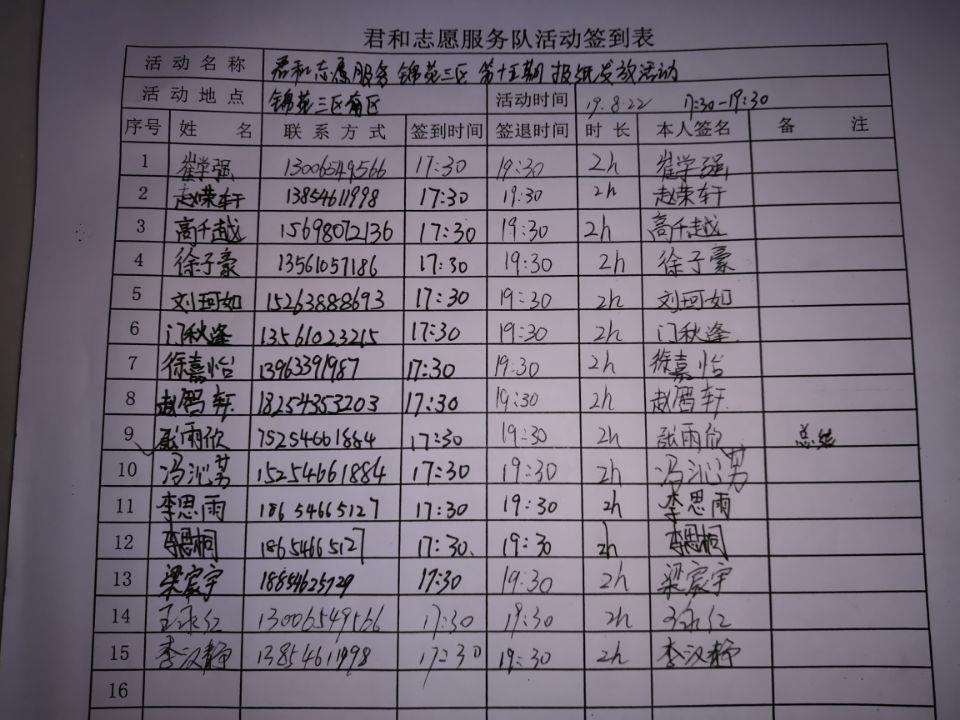 君和志愿服务队活动签到表
活动名称 君和志愿服务 锦苑三区 第十五期 报纸发放活动
活动地点 锦苑三区南区 活动时间 19.8.22 17:30-19:30
序号 姓名 联系方式 签到时间 签退时间 时长 本人签名 备注
1 崔学强 13006549566 17:30 19:30 2h 崔学强
2 赵荣轩 13854611998 17:30 19:30 2h 赵荣轩
3 高千越 15698072136 17:30 19:30 2h 高千越
4 徐子豪 13561057186 17:30 19:30 2h 徐子豪
5 刘珂如 15263888693 17:30 19:30 2h 刘珂如
6 门秋逢 13561023215 17:30 19:30 2h 门秋逢
7 徐嘉怡 13963391987 17:30 19:30 2h 徐嘉怡
8 赵 轩 18254353203 17:30 19:30 2h 赵 轩
9 张雨欣 15254661884 17:30 19:30 2h 张雨欣 总结
10 冯沁芳 15254661884 17:30 19:30 2h 冯沁芳
11 李思雨 18654665127 17:30 19:30 2h 李思雨
12 李思桐 18654665127 17:30 19:30 2h 李思桐
13 梁家宇 18854625729 17:30 19:30 2h 梁家宇
14 王永仁 13006549566 17:30 19:30 2h 王永仁
15 李汉静 13854611998 17:30 19:30 2h 李汉静
16